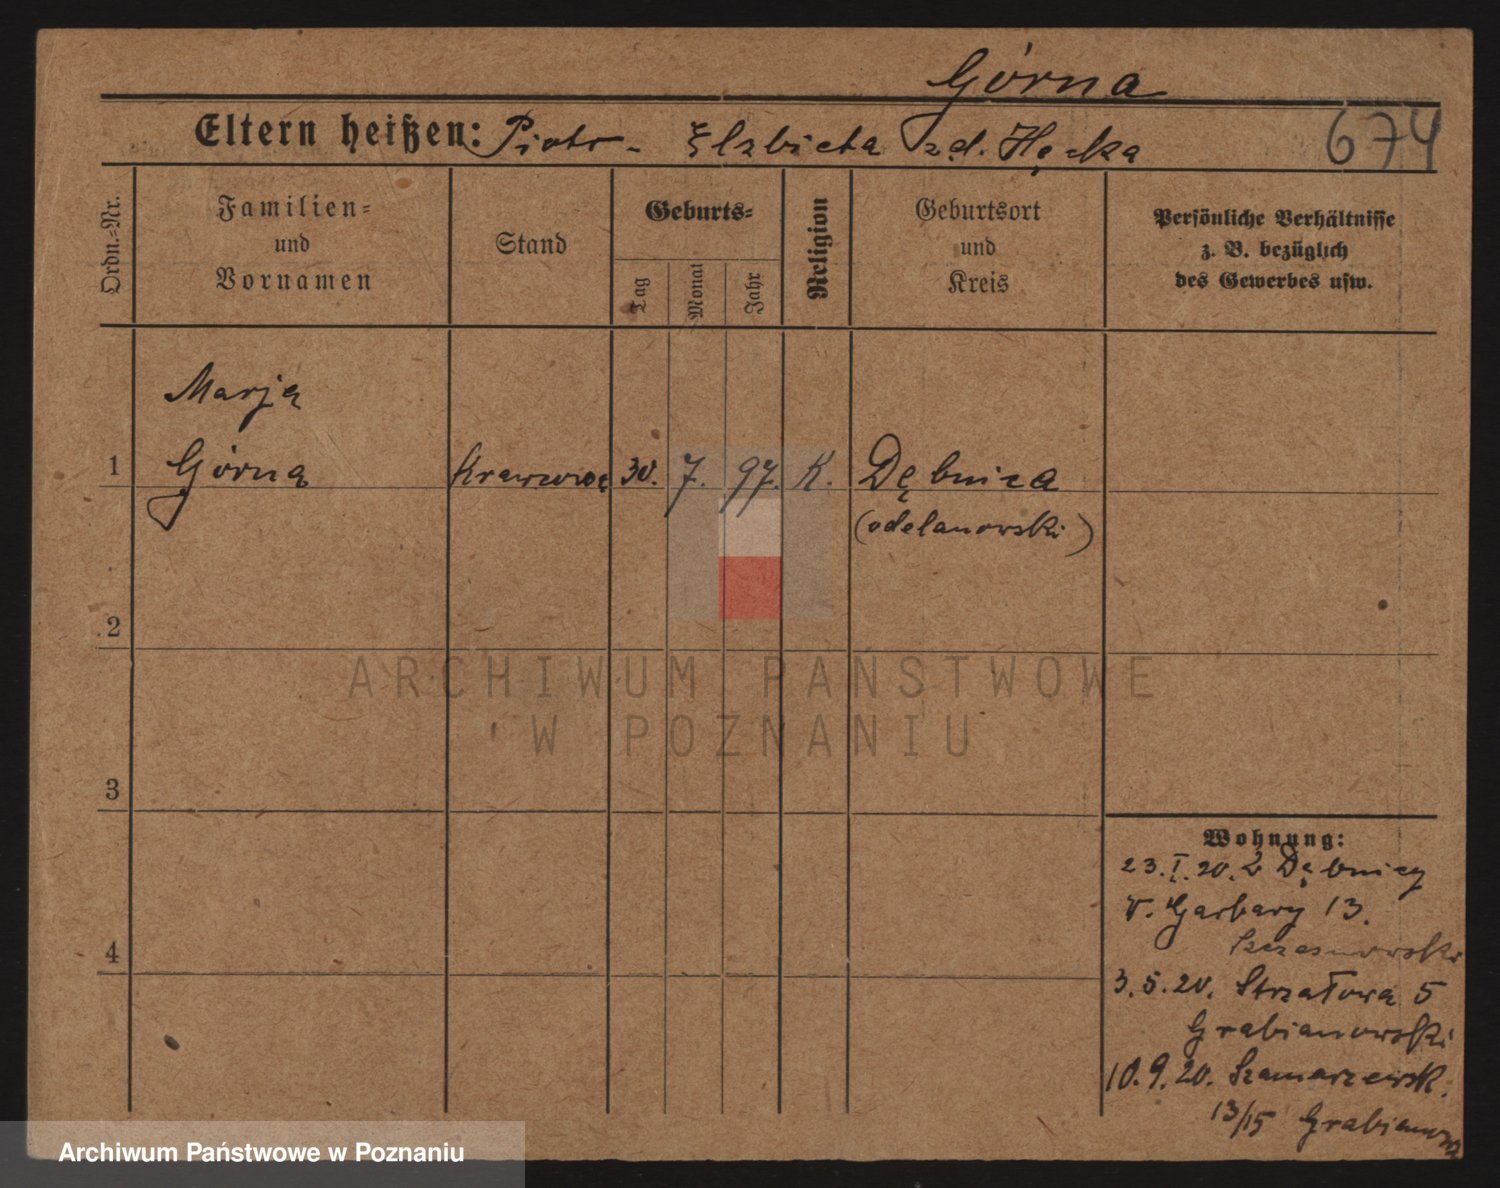 Górna
Eltern heißen: Piotr - Elzbieta zd.
674
Ordn.=Nr.
Familien=
und
Vornamen
Stand
Geburts=
Tag
Monat
Jahr
Religion
Geburtsort
und
Kreis
Persönliche Verhältnisse
z. B. bezüglich
des Gewerbes usw.
Marja
1 Górna Krawcowa 30. 7. 97. K. Dębnica
(odelanowski)
2
3
4
Wohnung:
23.I.20. Z Dębnicy
V. Garbary 13.
3.5.20. Strzałowa 5
Grabianowski
10.9.20. Szamarzewsk.
13/15
ARCHIWUM PAŃSTWOWE
W POZNANIU
Archiwum Państwowe w Poznaniu